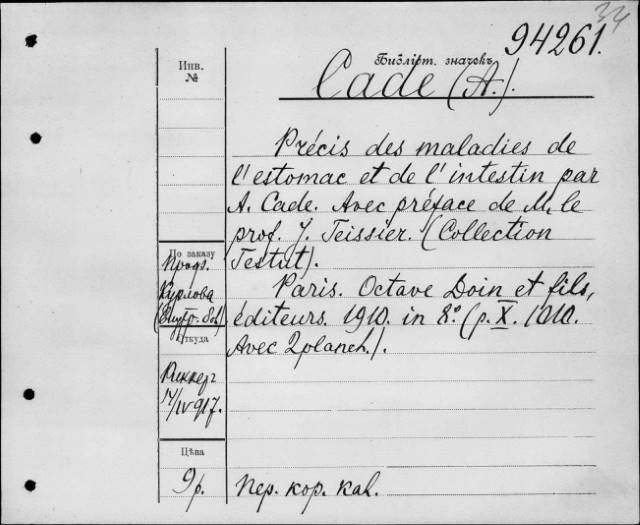 34
94261.
Библіот. значекъ
Инв.
№
Cade (A.).
Précis des maladies de
l'estomac et de l'intestin par
A. Cade. Avec préface de M. le
prof. J. Teissier. (Collection
Testut).
Paris. Octave Doin et fils,
éditeurs. 1910. in 8.° (p. X. 1010.
Avec 2 planch.).
По заказу
Проф.
Курлова
Откуда
Риккер
17/IV 917.
Цѣна
9р.
Пер. кор. кал.